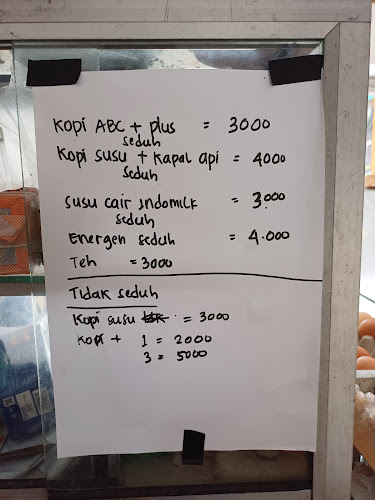 Kopi ABC + plus = 3000
seduh
Kopi susu + Kapal api = 4000
seduh
susu cair indomilk = 3.000
seduh
Energen seduh = 4.000
Teh = 3000
Tidak seduh
Kopi susu = 3000
Kopi + 1 = 2000
3 = 5000